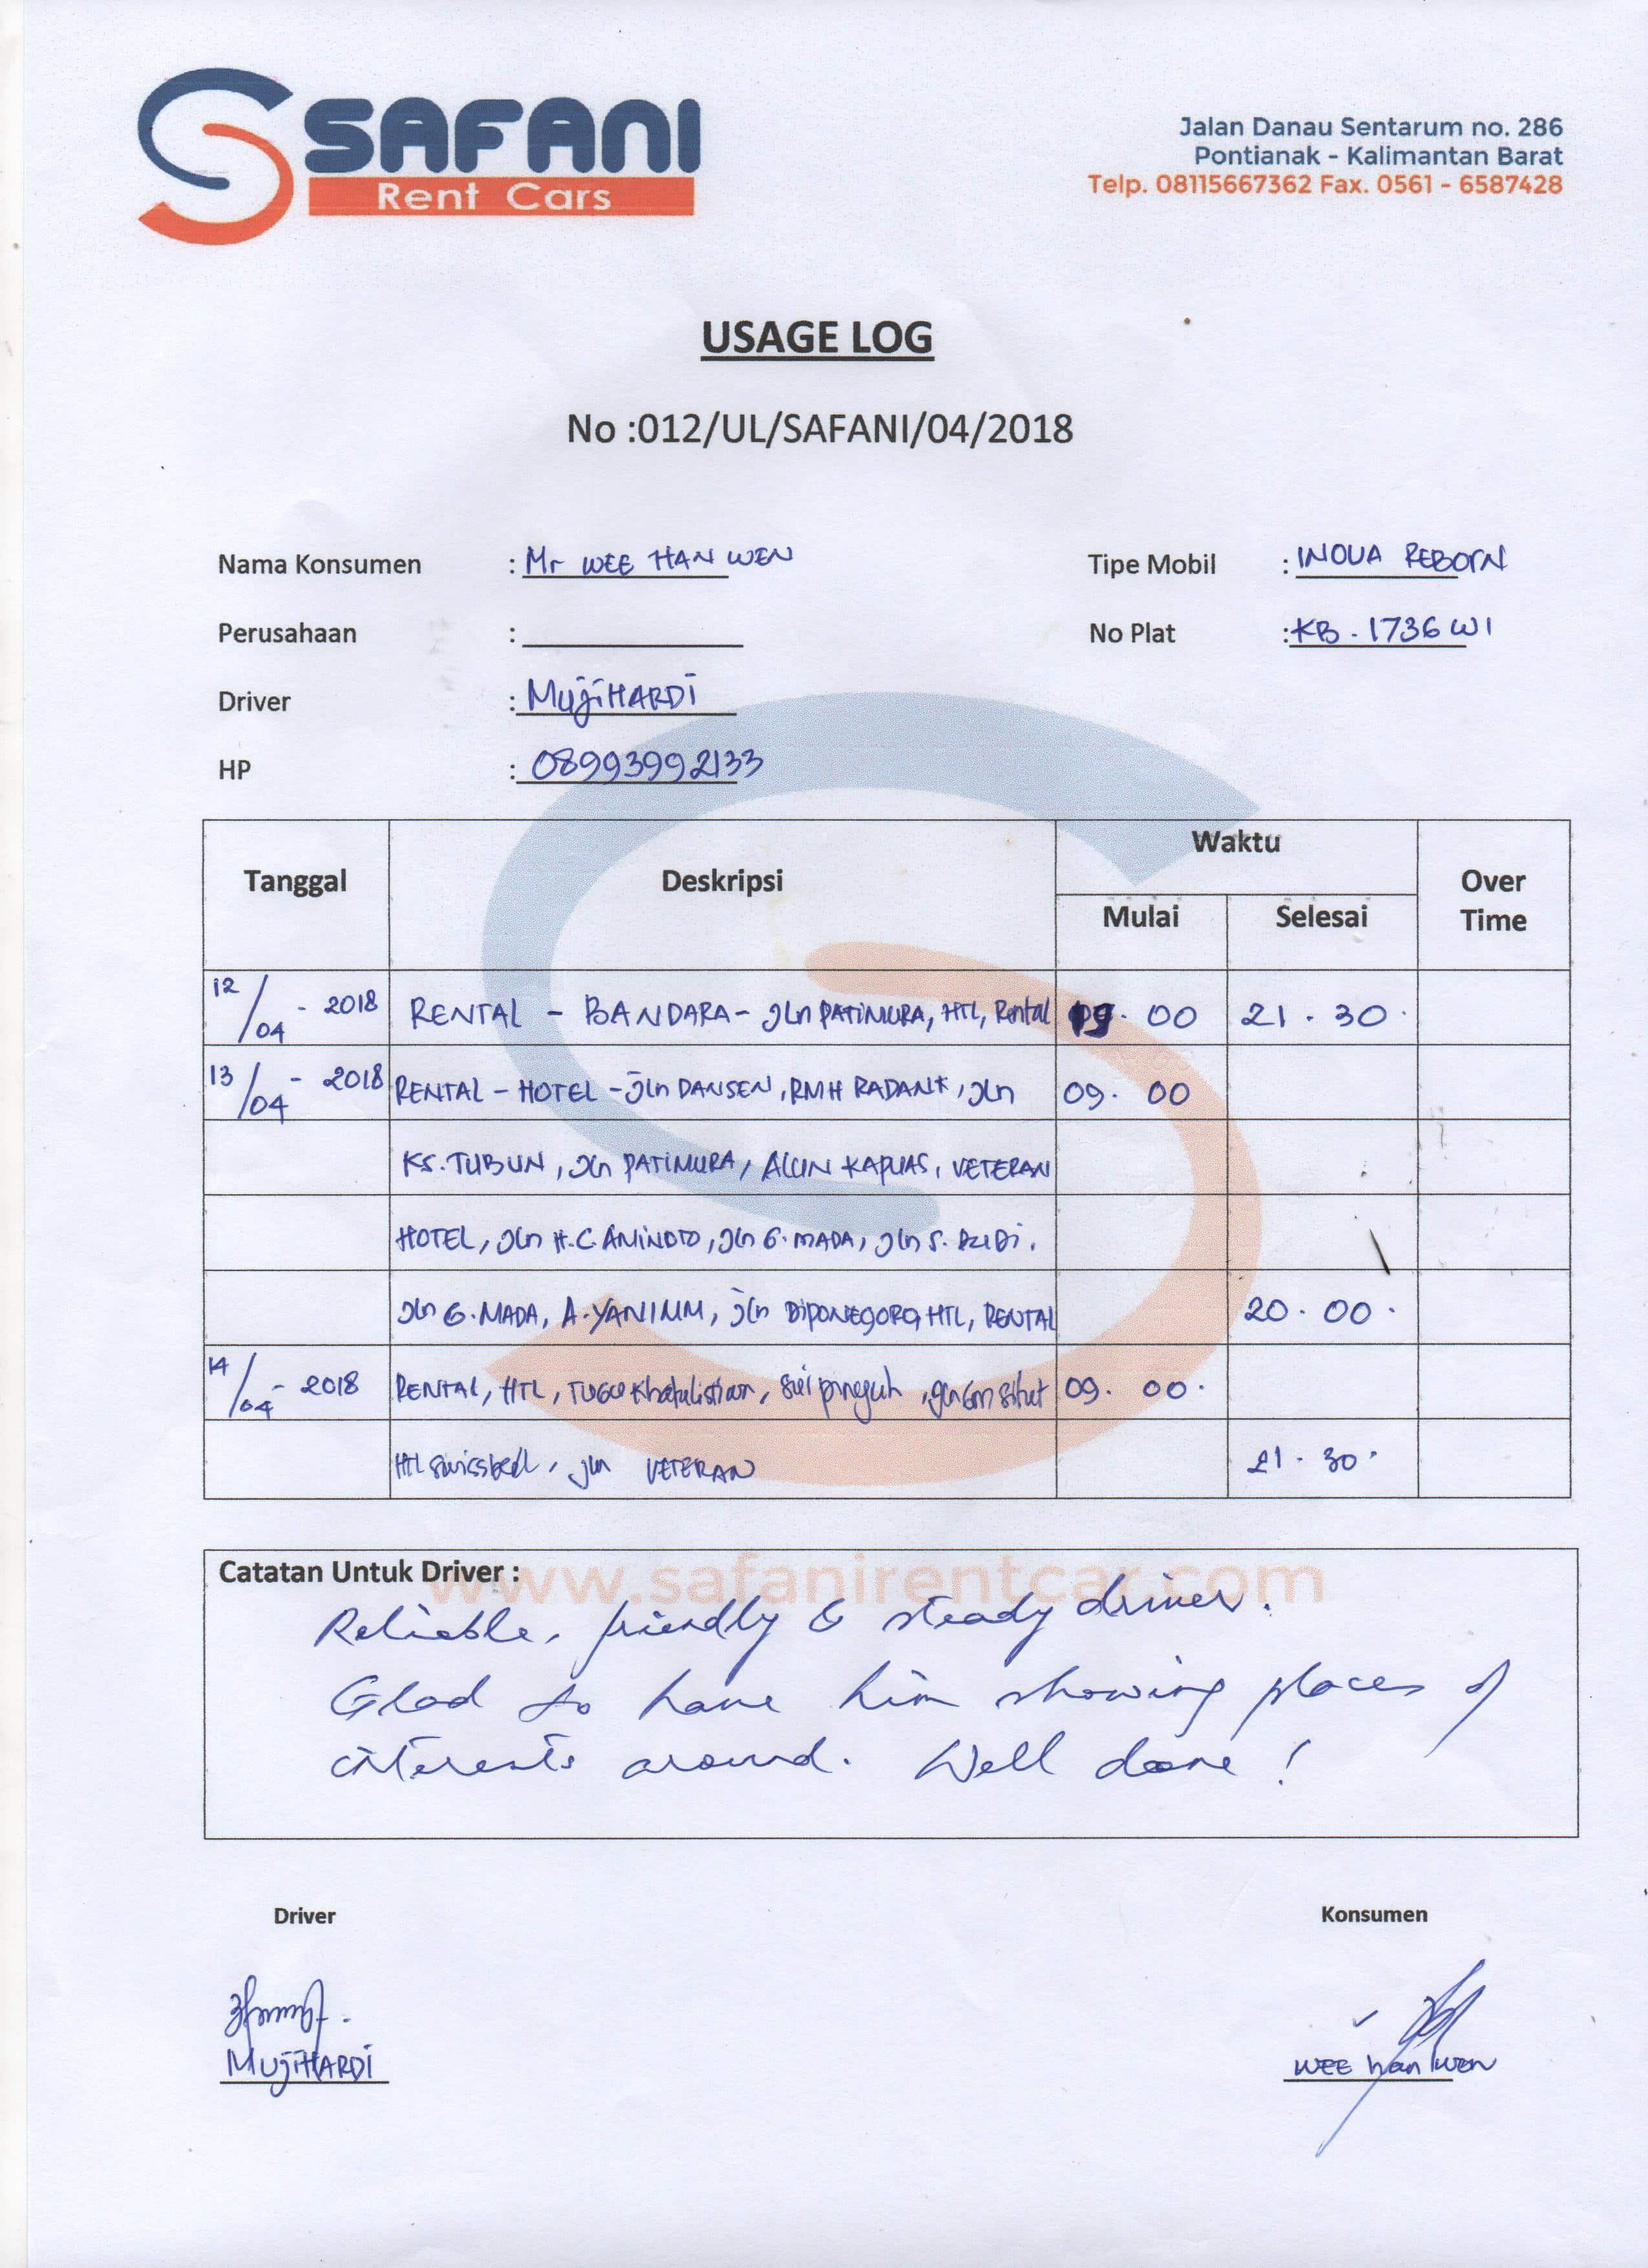 SAFANI
Rent Cars
Jalan Danau Sentarum no. 286
Pontianak - Kalimantan Barat
Telp. 08115667362 Fax. 0561 - 6587428
USAGE LOG
No :012/UL/SAFANI/04/2018
Nama Konsumen : Mr WEE HAN WEN Tipe Mobil : INOVA REBORN
Perusahaan : No Plat : KB . 1736 WI
Driver : MujiHARDi
HP : 08993992133
Tanggal Deskripsi Waktu Over Time
Mulai Selesai
12/04 - 2018 RENTAL - BANDARA - Jln PATIMURA, HTL, Rental 00 21 . 30 .
13/04 - 2018 RENTAL - HOTEL - Jln DANSEN, RMH RADANK, Jln 09 . 00
KS. TUBUN, Jln PATIMURA, ALUN KAPUAS, VETERAN
HOTEL, Jln H.C. Jln G. MADA, Jln S.
Jln G. MADA, A. YANI jln DiPONEGORO, HTL, RENTAL 20 . 00 .
14/04 - 2018 RENTAL, HTL, TUGU 09 . 00 .
Htl jln VETERAN 21 . 30 .
Catatan Untuk Driver :
www.safanirentcar.com
Reliable, friendly & steady driver.
Glad to have him showing places of
interests around. Well done !
Driver Konsumen
MujiHARDi WEE han wen